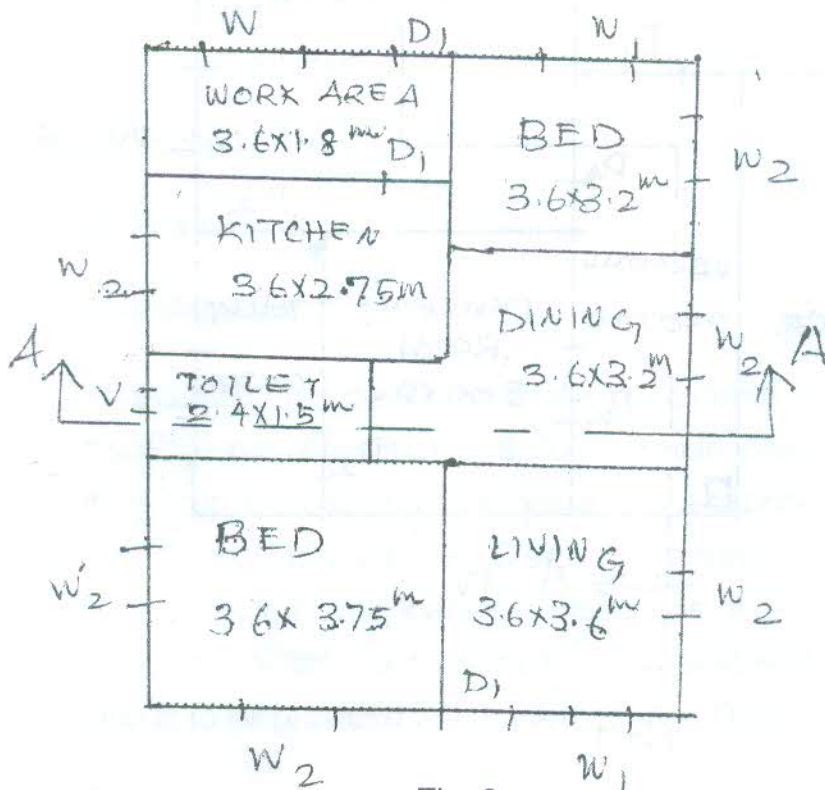 W D1 W1
WORK AREA
3.6x1.8 m
D1
BED
3.6x3.2 m
W2
KITCHEN
3.6x2.75m
W2
DINING
3.6x3.2 m
W2
A
A
TOILET
2.4x1.5 m
V
BED
3.6x 3.75 m
W2
LIVING
3.6x3.6 m
W2
D1
W2
W1